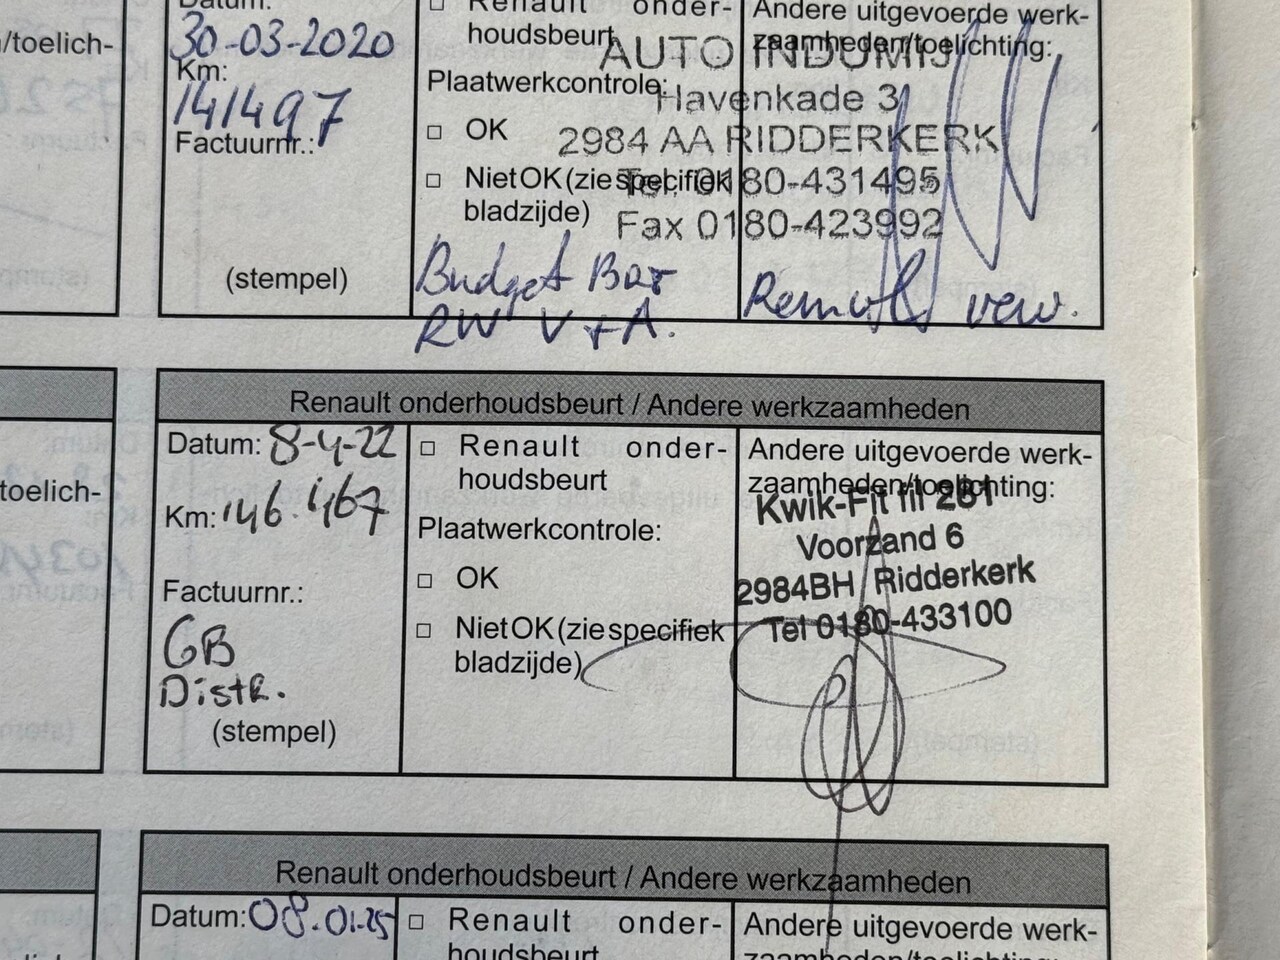 Datum:
30-03-2020
Km:
141497
Factuurnr.:
(stempel)
Renault onder-
houdsbeurt
Plaatwerkcontrole:
OK
Niet OK (zie specifiek
bladzijde)
Budget Bar
RW V + A.
Andere uitgevoerde werk-
zaamheden/toelichting:
AUTO INDUMIJ
Havenkade 3
2984 AA RIDDERKERK
Tel. 0180-431495
Fax 0180-423992
Remvl verv.
/toelich-
Renault onderhoudsbeurt / Andere werkzaamheden
Datum: 8-4-22
Km: 146.467
Factuurnr.:
GB
Distr.
(stempel)
Renault onder-
houdsbeurt
Plaatwerkcontrole:
OK
Niet OK (zie specifiek
bladzijde)
Andere uitgevoerde werk-
zaamheden/toelichting:
Kwik-Fit fil 261
Voorzand 6
2984BH Ridderkerk
Tel 0180-433100
toelich-
Renault onderhoudsbeurt / Andere werkzaamheden
Datum: 08.01.25
Renault onder-
houdsbeurt
Andere uitgevoerde werk-
zaamheden/toelichting: